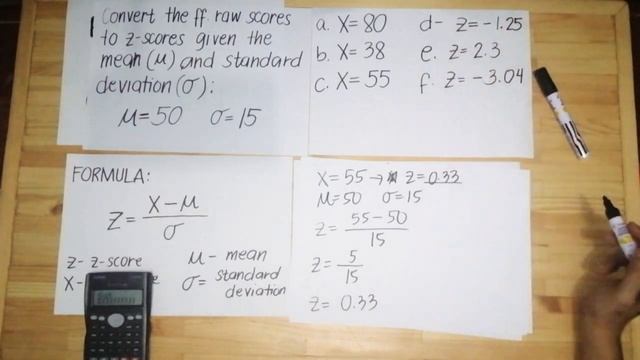 Convert the ff. raw scores
to z-scores given the
mean (μ) and standard
deviation (σ):
μ=50 σ=15
a. X=80 d- z=-1.25
b. X=38 e. z=2.3
c. X=55 f. z=-3.04
FORMULA:
z= X-μ
σ
z- z-score
X-
μ- mean
σ= standard
deviation
X=55 → z=0.33
μ=50 σ=15
z= 55-50
15
z= 5
15
z= 0.33